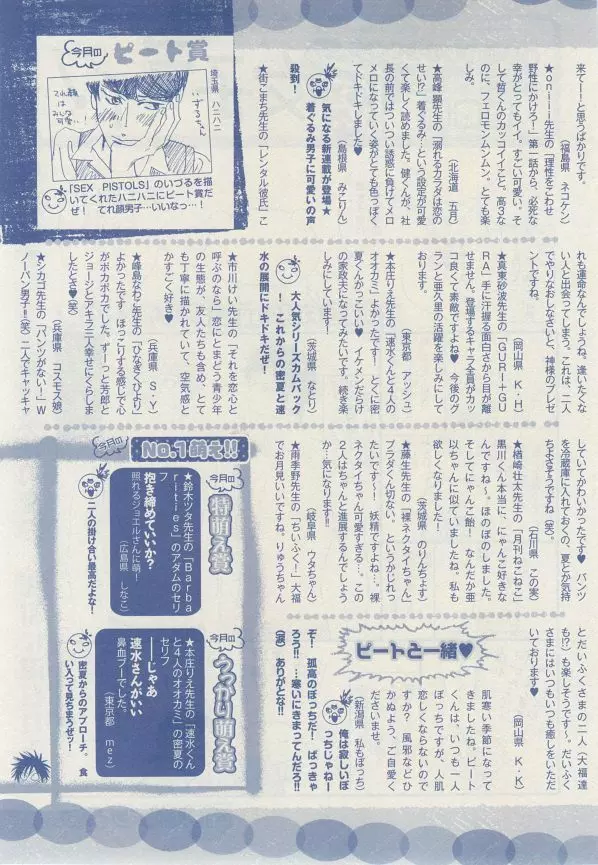 今月の
ピート賞
埼玉県 ハニハニ
てれ顔
は
みんな
可愛い…
いづるちゃん
「SEX PISTOLS」のいづるを描
いてくれたハニハニにピート賞だ
ぜ! てれ顔男子…いいなっ…!
来てー!と思うばかりです。
(福島県 ネコケン)
★oniii先生の「理性をこわせ
野性にかけろー」第一話から、必死な
幸がとってもイイ。すごい可愛い。そ
して哲くんのカッコイイこと。高3な
のに、フェロモンムンムン。とても楽
しみ。
(北海道 五月)
★高峰顕先生の「溺れるカラダは恋の
せい!?」着ぐるみ…という設定が可愛
くて楽しく読めました。健くんが、社
長の前ではついつい誘惑に負けてメロ
メロになっていく姿がとても色っぽく
てドキドキしました♥
(島根県 みとりん)
気になる新連載が可愛い★
着ぐるみ男子に可愛いの声
殺到!
★街こまち先生の「レンタル彼氏」こ
れも運命なんでしょうね、逢いたくな
い人と出会ってしまう。これは、二人
でやりなおしなさいと、神様のプレゼ
ントですね。
(岡山県 K・H)
★真東砂波先生の「GURI+GU
RA」手に汗握る面白さから目が離
せません。登場するキャラ全員がカッ
コ良くて素敵ですよね♥ 今後のグ
ランと亜久里の活躍を楽しみにして
おります。
(東京都 アッシュ)
★本庄りえ先生の「速水くんと4人の
オオカミ」よかったです! とくに密
夏くんかっこいい♥ イケメンだらけ
の家政夫になってみたいです。続き楽
しみにしています!
(茨城県 なとり)
大人気シリーズカムバック
! これからの密夏と速
水の展開にドキドキだぜ!
★市川けい先生の「それを恋心と
呼ぶのなら」恋にとまどう青少年
の生態が、友人たちも含め、とて
も丁寧に描かれていて、空気感と
かすごく好き♥
(兵庫県 S・Y)
★峰島なわこ先生の「ひなぎくびより」
よかったです♪ ほっこりする感じで心
がポカポカでした。ずーっと芳郎と
ジョージとアキラ三人幸せにくらしま
したとさ♥(笑)
(兵庫県 コスモス娘)
★シカゴ先生の「パンツがない!」W
ノーパン男子!!(笑)二人でキャッキャ
していてかわいかったです♥ パンツ
を冷蔵庫に入れておくの、夏とか気持
ちよさそうですね(笑)。
(石川県 この実)
★楢崎壮太先生の「月刊ねこねこ」
黒川くん本当に、にゃんこ好きな
んですね〜。ほのぼのしました。
そしてにゃんこ飴! なんだか亜
以ちゃんに似ていましたね。私も
欲しくなりました!
(茨城県 のりんちょす)
★藤生先生の「裸ネクタイちゃん」
プラダくん切ない、というかじれっ
たいです〜! 妖精ですよね…裸の
ネクタイちゃん可愛すぎる…。この
2人はちゃんと進展するんでしょう
か…気になります!!
(岐阜県 ウタちゃん)
★雨季野先生の「ちいふく!」大福
でお月見いいですね。りゅうちゃん
とだいふくさまの二人(大福達
も!?)も楽しそうです〜。だいふく
さまにはいつもいつも癒しをいただ
いております♥
(岡山県 K・K)
ピートと一緒♥
肌寒い季節になって
きましたね。ピート
くんは、いつも一人
ぼっちですが、人肌
恋しくならないので
すか? 風邪などひ
かぬよう、ご自愛く
ださいませ。
(新潟県 私もぼっち)
俺は寂しいぼ
っちじゃねー
ぞ! 孤高のぼっちだ! ばっきゃ
ろっ!! …寒いにきまってんだろ!!
(涙) ありがとな!!
今月の
No.1萌え!!
今月の
特萌え賞
★鈴木ツタ先生の「Barba
rities」のアダムのセリ
フ
抱き締めていいか?
照れるジョエルさんに萌!
(広島県 しなこ)
二人の掛け合い最高だよな!
今月の
うっかり萌え賞
★本庄りえ先生の「速水くん
と4人のオオカミ」の密夏の
セリフ
――じゃあ
速水さんがいい
鼻血ブーでした。
(東京都 mez)
密夏からのアプローチ。 食
い入って見ちまうぜッ!